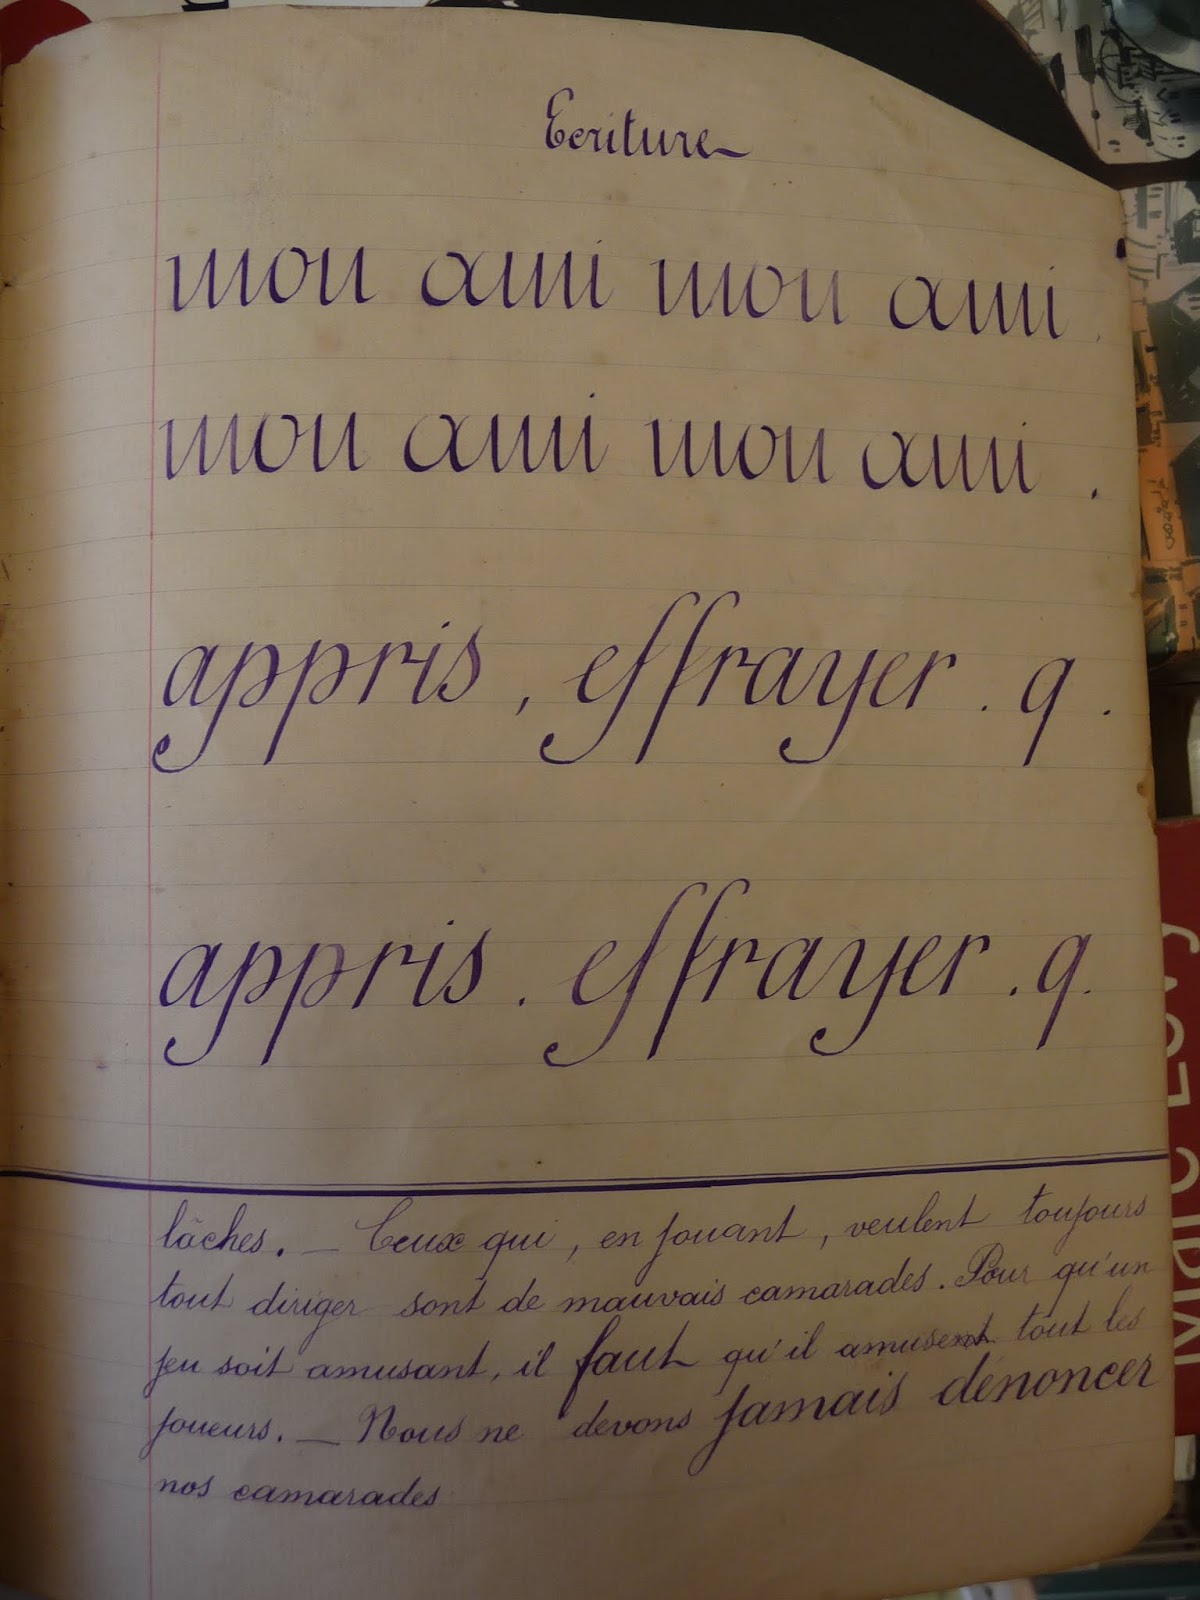 Ecriture
mon ami mon ami.
mon ami mon ami.
appris, effrayer. q.
appris. effrayer. q.
lâches. — Ceux qui, en jouant, veulent toujours
tout diriger sont de mauvais camarades. Pour qu'un
jeu soit amusant, il faut qu'il amusent tout les
joueurs. — Nous ne devons jamais dénoncer
nos camarades
Marc Levy